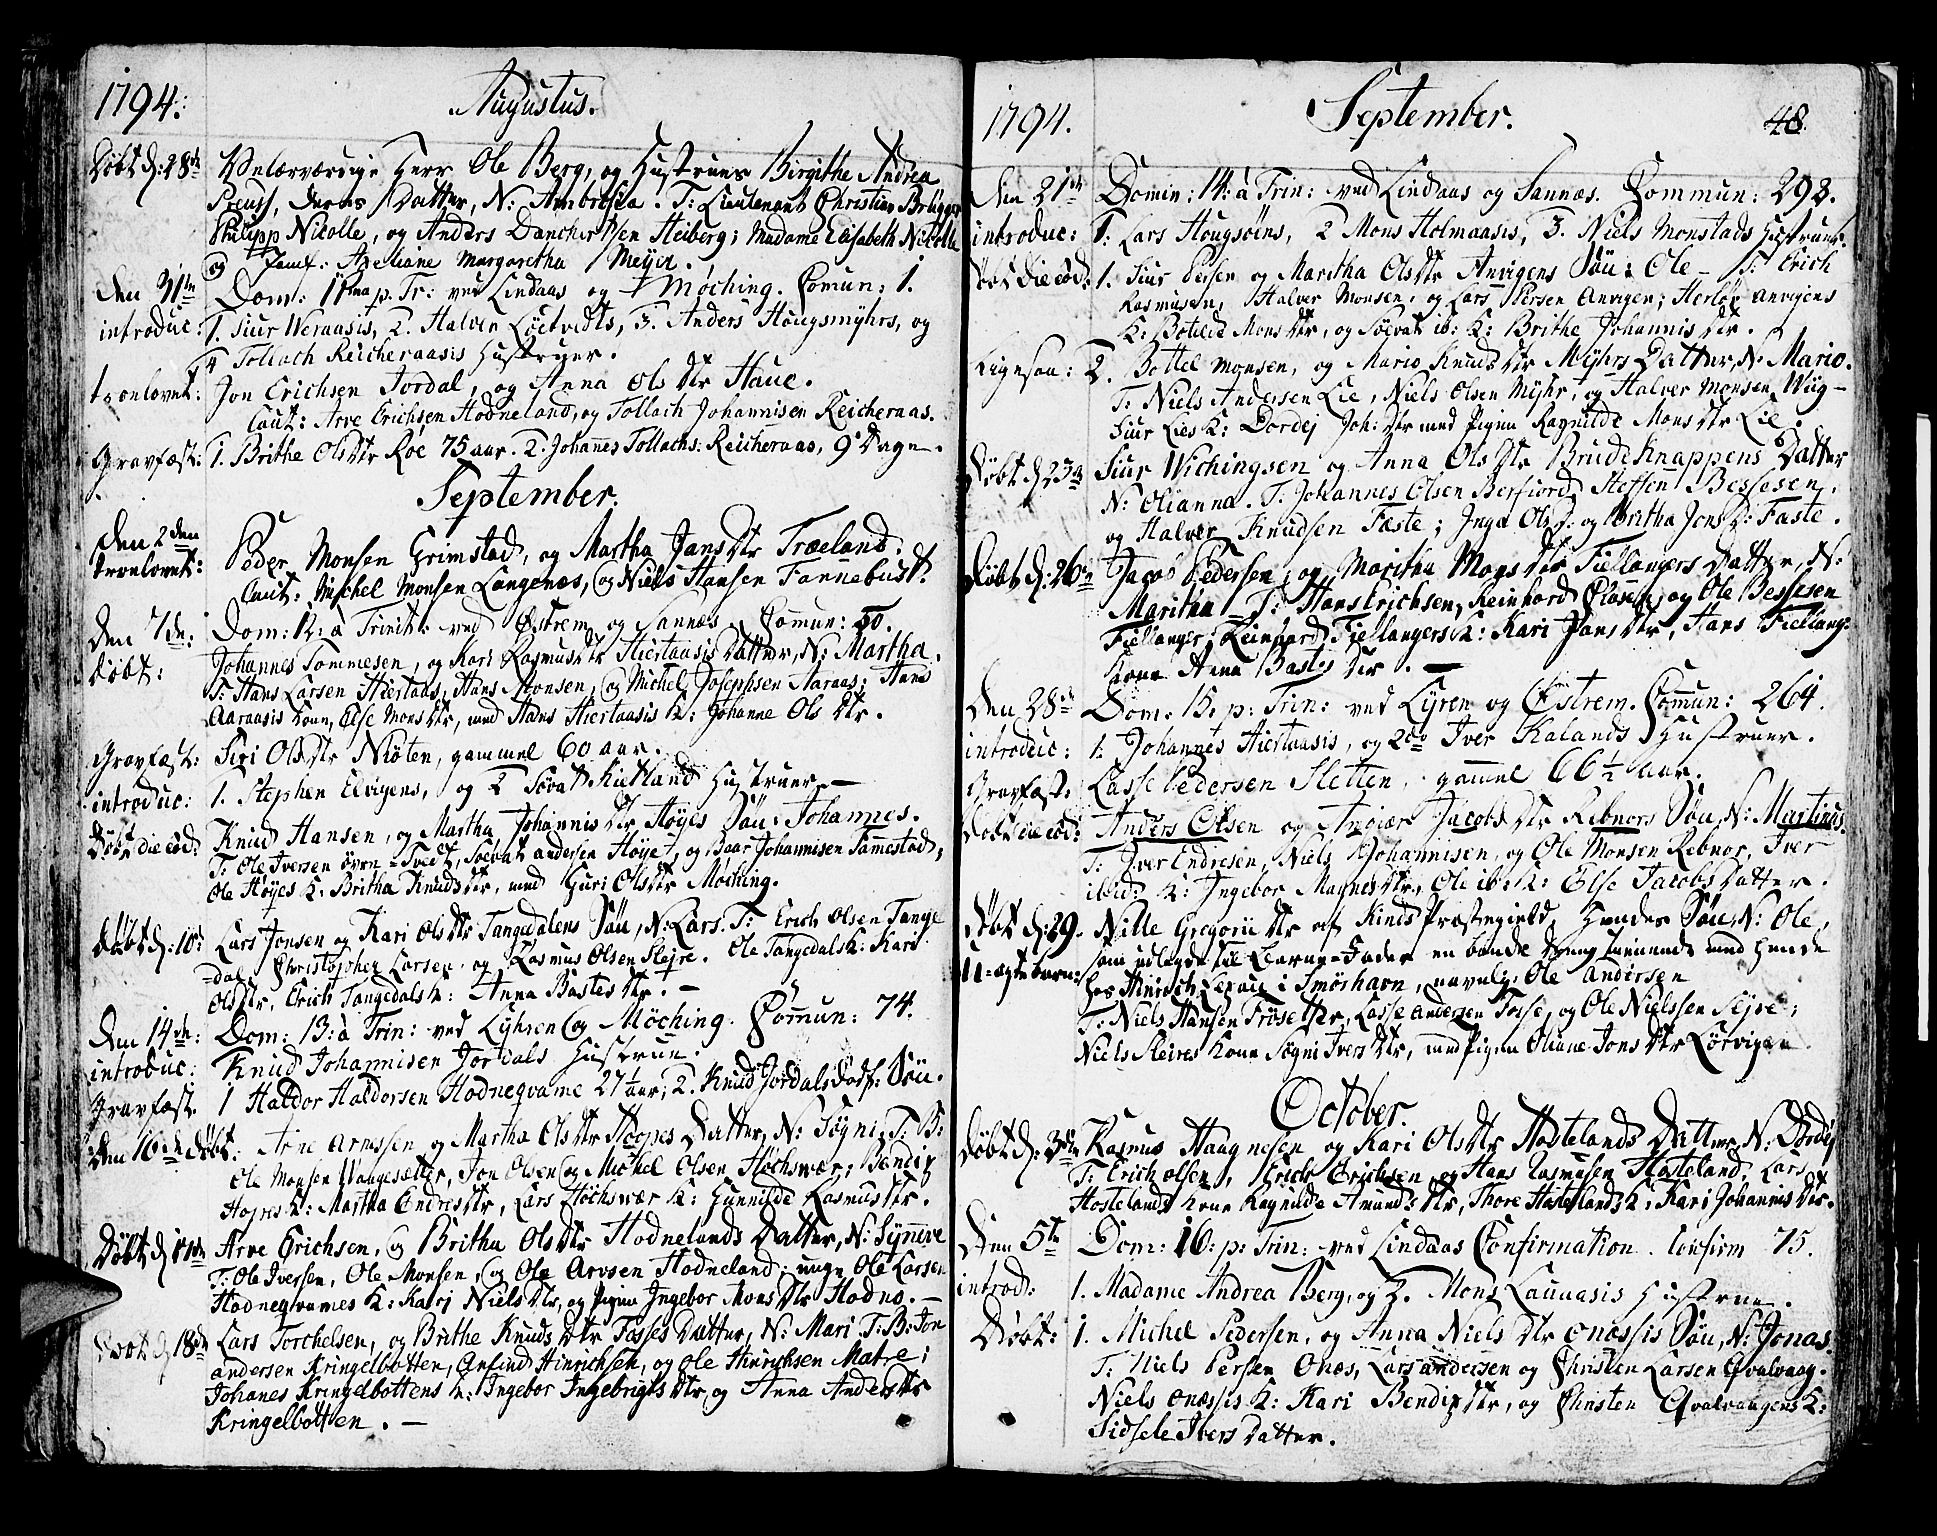 1794. Augustus.
Døbt d: 28de Velærværdige Herr Ole Berg, og Hustrues Birgithe Andrea
Preuss, deres Datter, N: Ambrosia. T: Lieutenant Christian Brügger
Philipp Nicolle, og Anders Danchertsen Heiberg; Madame Elisabeth Nicolle
og Jomf: Axeliane Margaretha Meyer.
Den 31te Dom: 11ma p. Tr: ved Lindaas og Møching. Comun: 1.
introduc: 1. Siur Weraasis, 2. Halver Løetvedts, 3. Anders Hougsmyhrs, og
4 Tollach Reicheraasis Hustruer.
tronlovet: Jon Erichsen Jordal, og Anna Ols dtr Haue.
Caut: Arve Erichsen Hodneland, og Tollach Johannisen Reicheraas.
Gravfæst: 1. Brithe Olsdtr Roe 75 aar. 2. Johannes Tollachs: Reicheraas, 9 Dage.
September.
Den 2den
tronlovet: Peder Monsen Grimstad, og Martha Jansdtr Træeland.
Caut: Michel Monsen Langenæs, og Niels Hansen Fannebust.
Den 7de: Dom: 12: à Trinit: ved Østrem og Sannæs. Comun: 50.
Døbt: Johannes Tommesen, og Kari Rasmusdtr Hiertaasis Datter, N: Martha.
T: Hans Larsen Hiertaas, Hans Monsen, og Michel Josephsen Aaraas; Hans
Aaraasis Kone, Else Monsdtr, med Hans Hiertaasis K: Johanne Ols dtr.
Gravfæst: Siri Olsdtr Niøten, gammel 60 aar.
introduc: 1. Stephen Elvigens, og 2 Søvat Kietland Hustruer. —
Døbt die eod: Knud Hansen, og Martha Johannis dtr Høyes Søn: Johannes.
T: Ole Iversen øvre Tvedt, Søvat andersen Høye, og Baar Johannisen Samestad,
Ole Høyes K: Britha Knudsdtr, med Guri Olsdtr Møching.
Døbt d: 10de Lars Jonsen og Kari Olsdtr Tangedalens Søn, N: Lars. T: Erich Olsen Tange
=dal, Christopher Larsen, og Rasmus Olsen Sleire. Ole Tangedals K: Kari
Olsdtr, Erich Tangedals K: Anna Bastesdtr. —
Den 14de: Dom: 13: à Trin: ved Lyhren og Møching. Comun: 74.
introduc: Knud Johannisen Jordals Hustrue.
Gravfæst. 1 Haldor Haldorsen Hodneqvame 27½ aar; 2. Knud Jordals dødf: Søn.
Den 16de Døbt. Arne Arnesen og Martha Olsdtr Hopes Datter, N: Søgni. T: B:
Ole Monsen Wangesetter, Jon Olsen og Michel Olsen Høchswær; Bendix
Hopes K: Martha Endresdtr, Lars Høchswær K: Gunnilde Rasmusdtr.
Døbt d 17de Arve Erichsen, og Britha Olsdtr Hodnelands Datter, N: Synneve
T: Ole Iversen, Ole Monsen, og Ole Arvesen Hodneland; unge Ole Larsen
Hodneqvames K: Kari Nielsdtr, og Pigen Ingebor Monsdtr Hodne. —
Døbt d 18de Lars Torchelsen, og Brithe Knudsdtr Fosses Datter, N: Mari T: B: Jon
andersen Kringelbotten, Anfind Hinrichsen, og Ole Hinrichsen Matre;
Johanes Kringelbottens K: Ingebor Ingebrigtsdtr, og Anna Andersdtr
Kringelbotten. —
1794. September. 48.
Den 21de Domin: 14: à Trin: ved Lindaas og Sannæs. Commun: 298.
introduc: 1. Lars Hougsøens, 2 Mons Holmaasis, 3. Niels Monstads Hustruer.
Døbt die eod: 1. Siur Peisen og Maritha Olsdtr Anvigens Søn: Ole — T: Erich
Rasmusen, Halver Monsen, og Lars Persen Anvigen; Herløv Anvigens
K: Botilde Monsdtr, og Søevat ib: K: Brithe Johannisdtr.
Ligesaa: 2. Bottel Monsen, og Mario Knudsdtr Myhrs Datter, N: Mario.
T: Niels Andersen Lie, Niels Olsen Myhr, og Halver Monsen Wiig —
Siur Lies K: Dordej Joh: dtr med Pigen Ragnilde Monsdtr Lie.
Døbt d 23de Siur Wichingsen og Anna Olsdtr Brudeknappens Datter
N: Olianna. T: Johannes Olsen Berfiord, Steffen Bessesen,
og Halver Knudsen Fæste; Inga Olsd: og Britha Jons D: Faste.
Døbt d: 26de Jacob Pedersen, og Maritha Monsdtr Fiellangers Datter, N:
Maritha — T: Hans Erichsen, Reinhard Clasen, og Ole Bessesen
Fiellanger; Reinhard Fiellangers K: Kari Jansdtr, Hans Fiellang:
Kone Anna Bastesdtr. —
Den 28de Dom: 15: p: Trin: ved Lyren og Østrem. Comun: 264.
introduc: 1. Johannes Hiertaasis, og 2do Iver Kalands Hustruer.
Gravfæst: Lasse Pedersen Sletten, gammel 66½ aar.
Døbt die eod: Anders Olsen og Anoier Jacobsdtr Rebnors Søn, N: Martinus.
T: Iver Endresen, Niels Johannisen, og Ole Monsen Rebnor, Iver
ibid: K: Ingebor Magnesdtr, Ole ib: K: Else Jacobs Datter.
Døbt d: 29. Nille Gregorii dtr af Kinds Præstegield, Hendes Søn, N: Ole,
U=ægte barn: som udlagde til Barne=Fader en bonde dreng tienende med hende
hos Hinrich Lexau i Smøshavn, navnlig: Ole Andersen
T: Niels Hansen Frøsetter, Lasse Andersen Fosse, og Ole Nielssen Slejre;
Niels Sleires Kone Søgni Iversdtr, med Pigen Oliane Jonsdtr Lørvigen.
October.
Døbt d: 3de Rasmus Haagnesen og Kari Olsdtr Hostelands Datter, N: Dordej
T: Erich Olsen, Erich Erichsen og Hans Rasmusen Hosteland; Lars
Hostelands Kone Ragnilde Amundsdtr, Thore Hostelands K: Kari Johannisdtr.
Den 5te Dom: 16: p: Trin: ved Lindaas Confirmation. Confirm 75.
introd: 1. Madame Andrea Berg, og 2. Mons Launasis Hustrue.
Døbt: 1. Michel Pedersen, og Anna Nielsdtr Onæssis Søn, N: Jonas.
T: Niels Persen Onæs, Lars andersen og Christen Larsen Qvalvaag.
Niels Onæssis K: Kari Bendixdtr, og Christen Qvalvaagens K:
Sidsele Ivers Datter.